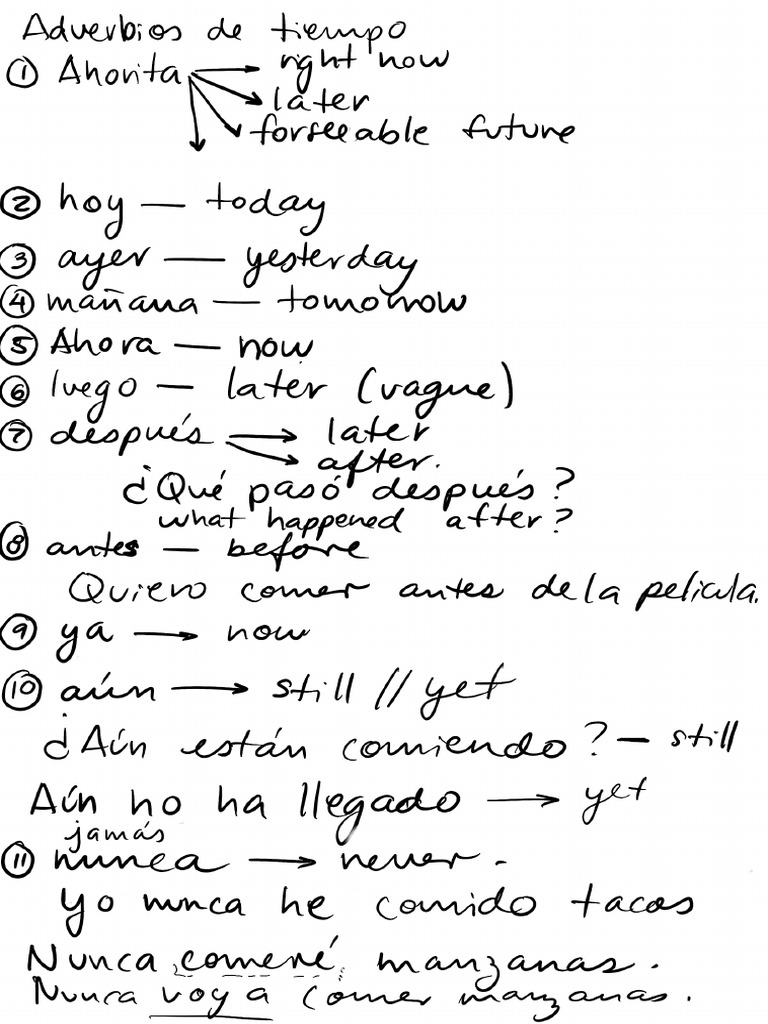 Adverbios de tiempo
① Ahorita → right now
→ later
→ forseeable future
② hoy — today
③ ayer — yesterday
④ mañana — tomorrow
⑤ Ahora — now
⑥ luego — later (vague)
⑦ después → later
→ after.
¿Qué pasó después?
what happened after?
⑧ antes — before
Quiero comer antes de la pelicula.
⑨ ya → now
⑩ aún → still // yet
¿Aún están comiendo? — still
Aún no ha llegado → yet
jamás
⑪ nunca → never.
Yo nunca he comido tacos
Nunca comeré manzanas.
Nunca voy a comer manzanas.